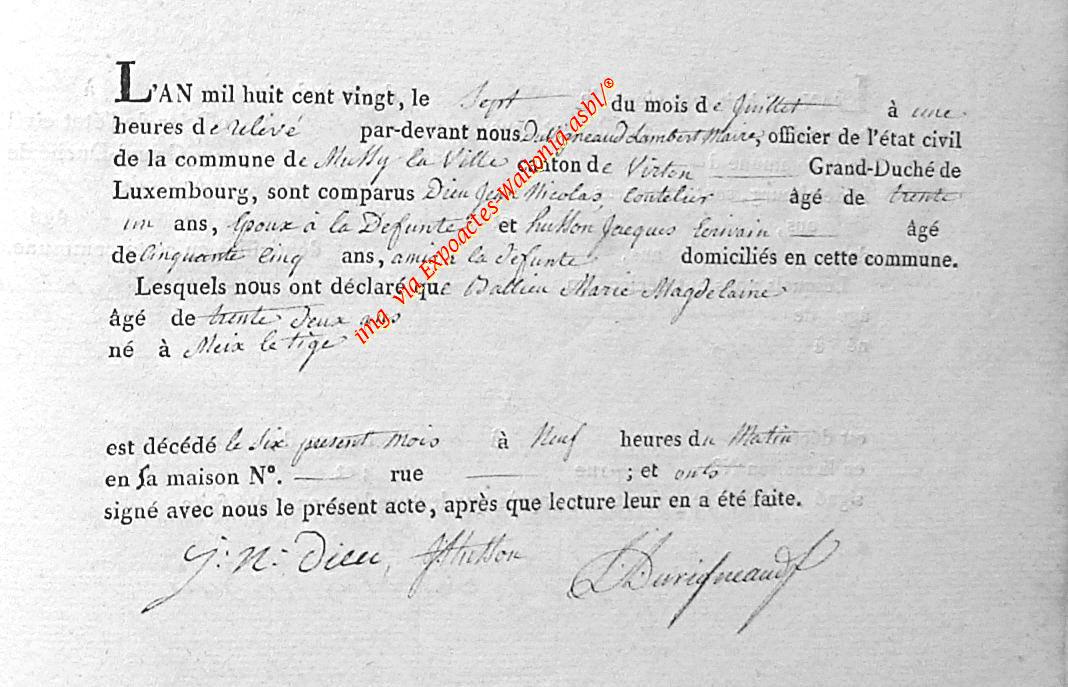 L'AN mil huit cent vingt, le Sept du mois de Juillet à une
heures de relevé par-devant nous Duvigneaud Lambert Maire, officier de l'état civil
de la commune de Mussy la Ville canton de Virton Grand-Duché de
Luxembourg, sont comparus Dieu Jean Nicolas, Coutelier âgé de trente
un ans, Epoux à la Defunte et husson Jacques Ecrivain âgé
de Cinquante Cinq ans, ami à la défunte domiciliés en cette commune.
Lesquels nous ont déclaré que Ballieu Marie Magdelaine
âgé de trente Deux ans
né à Meix le tige
est décédé le six present mois à Neuf heures du Matin
en sa maison N°. rue ; et onts
signé avec nous le présent acte, après que lecture leur en a été faite.
J. N. Dieu, JHusson LDuvigneaud
img via Expoactes-Wallonia asbl/©